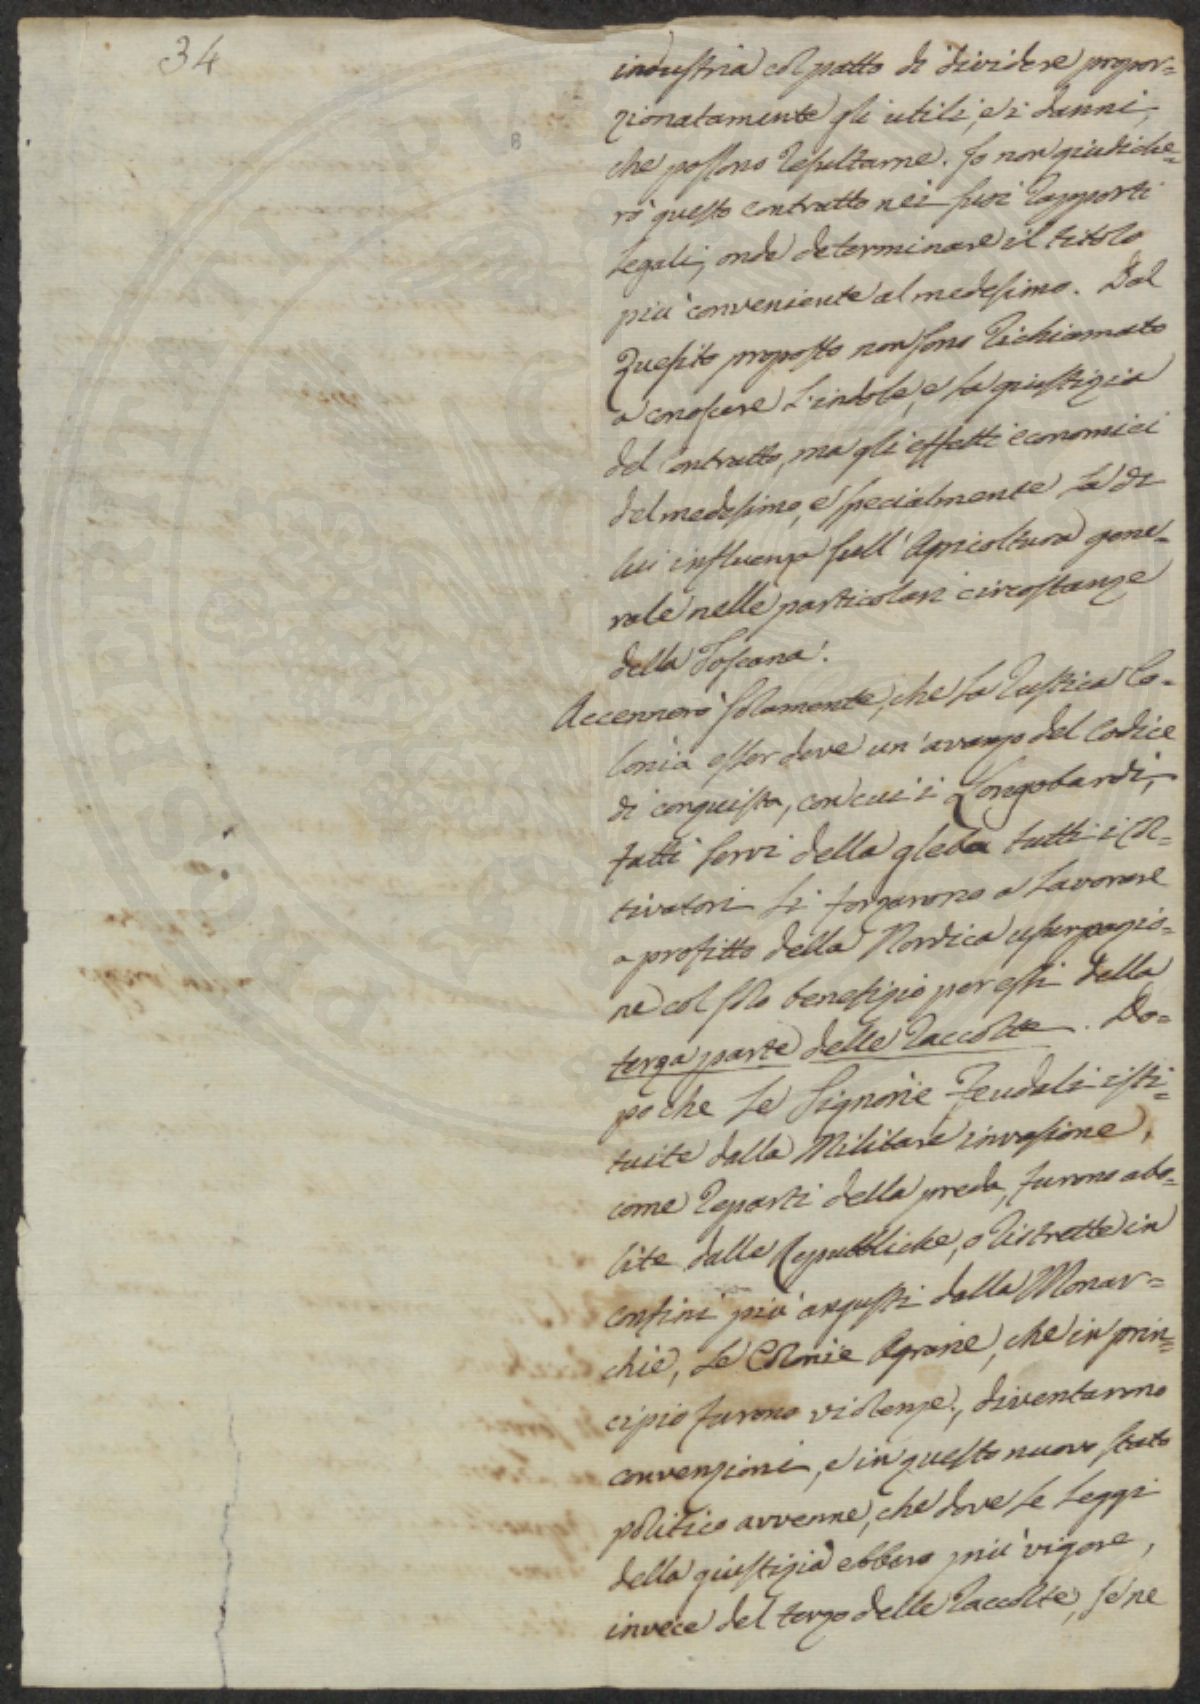 34
industria col patto di dividere propor=
zionatamente gli utili, e i danni,
che possono resultarne. Io non giudiche=
rò questo contratto nei suoi rapporti
legali, onde determinare il titolo
più conveniente al medesimo. Dal
Quesito proposto non sono richiamato
a conoscere l'indole, e la giustizia
del contratto, ma gli effetti economici
del medesimo, e specialmente la di
lui influenza sull'Agricoltura gene=
rale nelle particolari circostanze
della Toscana.
Accennerò solamente, che la rustica Co=
lonìa esser deve un'avanzo del Codice
di conquista, con cui i Longobardi,
fatti servi della gleba tutti i Col=
tivatori li forzarono a lavorare
a profitto della Nordica usurpazio=
ne col solo benefizio per essi della
terza parte delle raccolte. Do=
po che le Signorìe Feudali isti=
tuite dalla Militare invasione,
come reparti della preda, furono abo=
lite dalle Repubbliche, o ristrette in
confini più angusti dalla Monar=
chìe, le Colonìe Agrarie, che in prin=
cipio furono violenze, diventarono
convenzioni, e in questo nuovo stato
politico avvenne, che dove le leggi
della giustizia ebbero più vigore,
invece del terzo delle raccolte, se ne